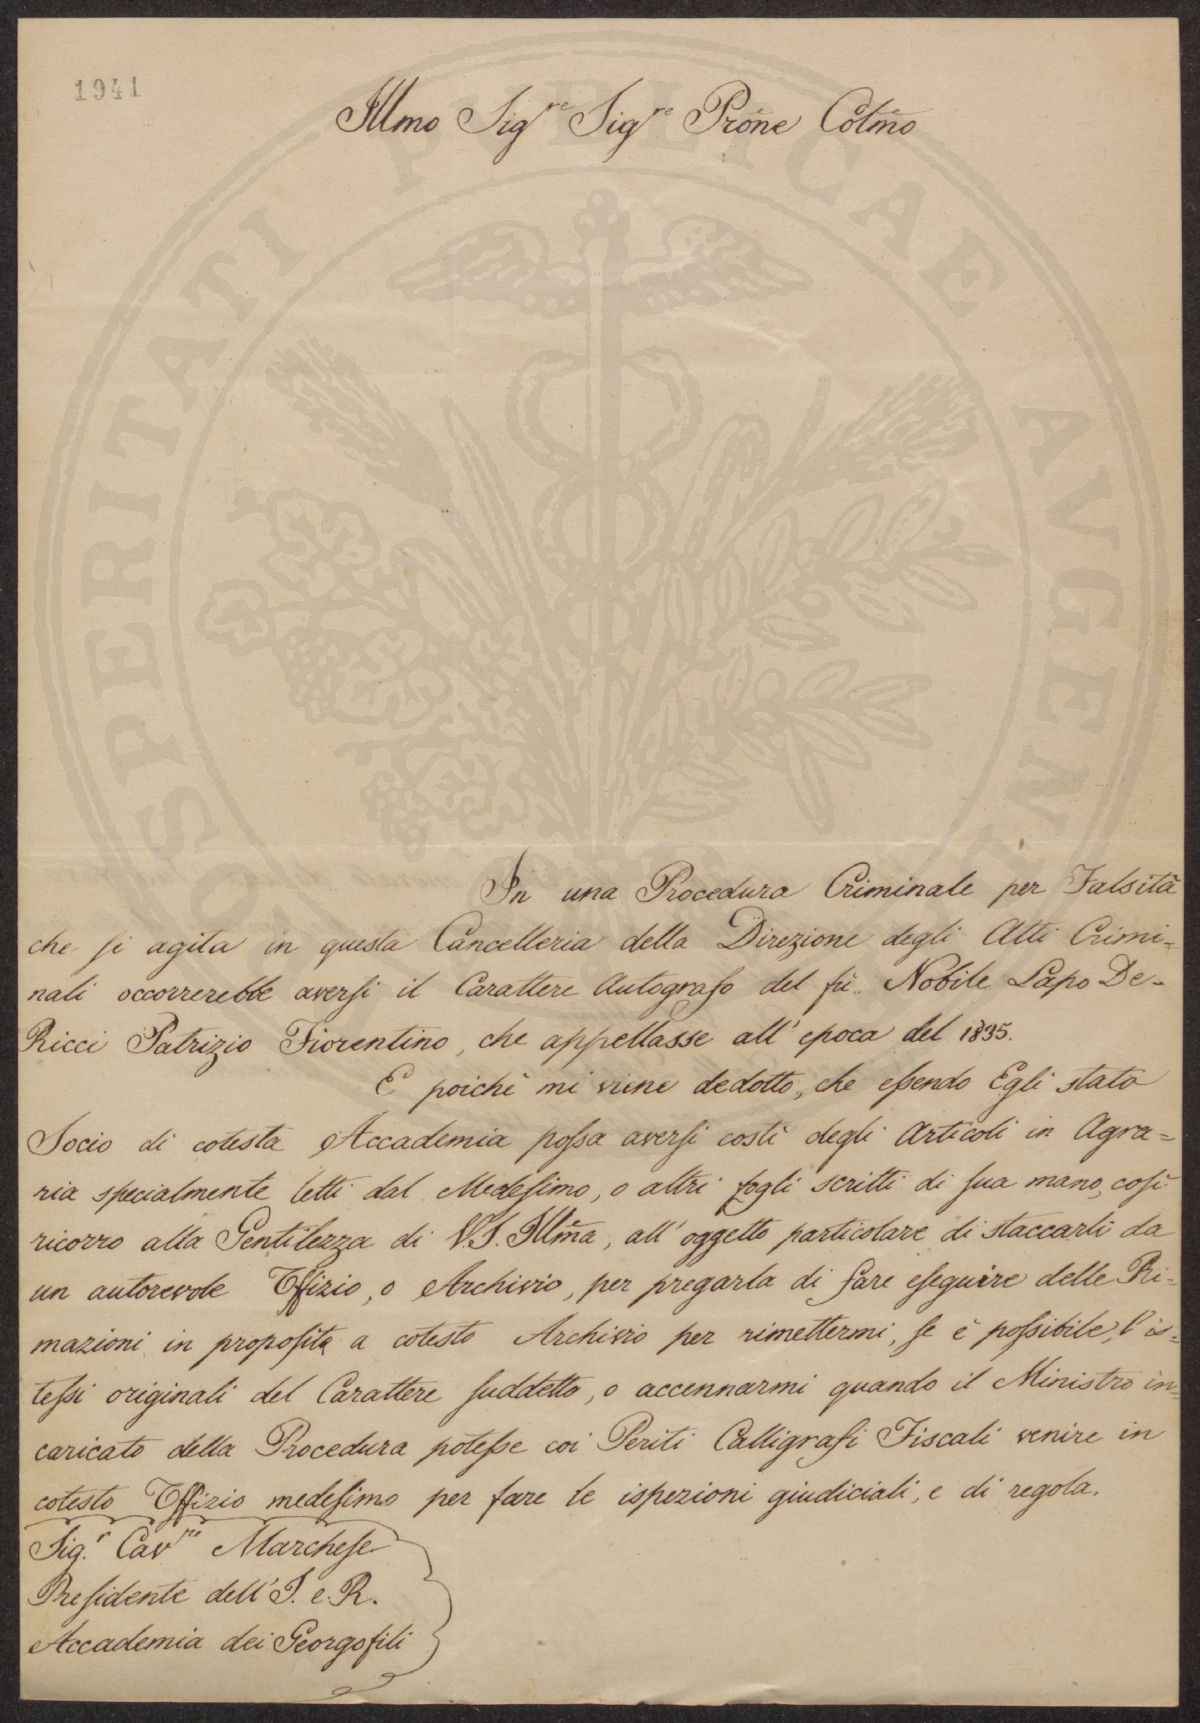 1941
Illmo Sig.re Sig.re Prõne Colmõ
In una Procedura Criminale per Falsità
che si agita in questa Cancelleria della Direzione degli Atti Crimi=
nali occorrerebbe aversi il Carattere Autografo del fù Nobile Lapo De=
Ricci Patrizio Fiorentino, che appellasse all' epoca del 1835.
E poichè mi viene dedotto, che essendo Egli stato
Socio di cotesta Accademia possa aversi costì degli Articoli in Agra=
ria specialmente letti dal Medesimo, o altri fogli scritti di sua mano, così
ricorro alla Gentilezza di V.S. Illm̃a, all' oggetto particolare di staccarli da
un autorevole Offizio, o Archivio, per pregarla di fare eseguire delle Ri=
mazioni in proposito a cotesto Archivio per rimettermi, se è possibile, l' is=
tessi originali del Carattere suddetto, o accennarmi quando il Ministro in=
caricato della Procedura potesse coi Periti Calligrafi Fiscali venire in
cotesto Offizio medesimo per fare le ispezioni giudiciali, e di regola.
Sig.r Cav.re Marchese
Presidente dell' I. e R.
Accademia dei Georgofili
PROSPERITATI PUBLICAE AVGENDAE